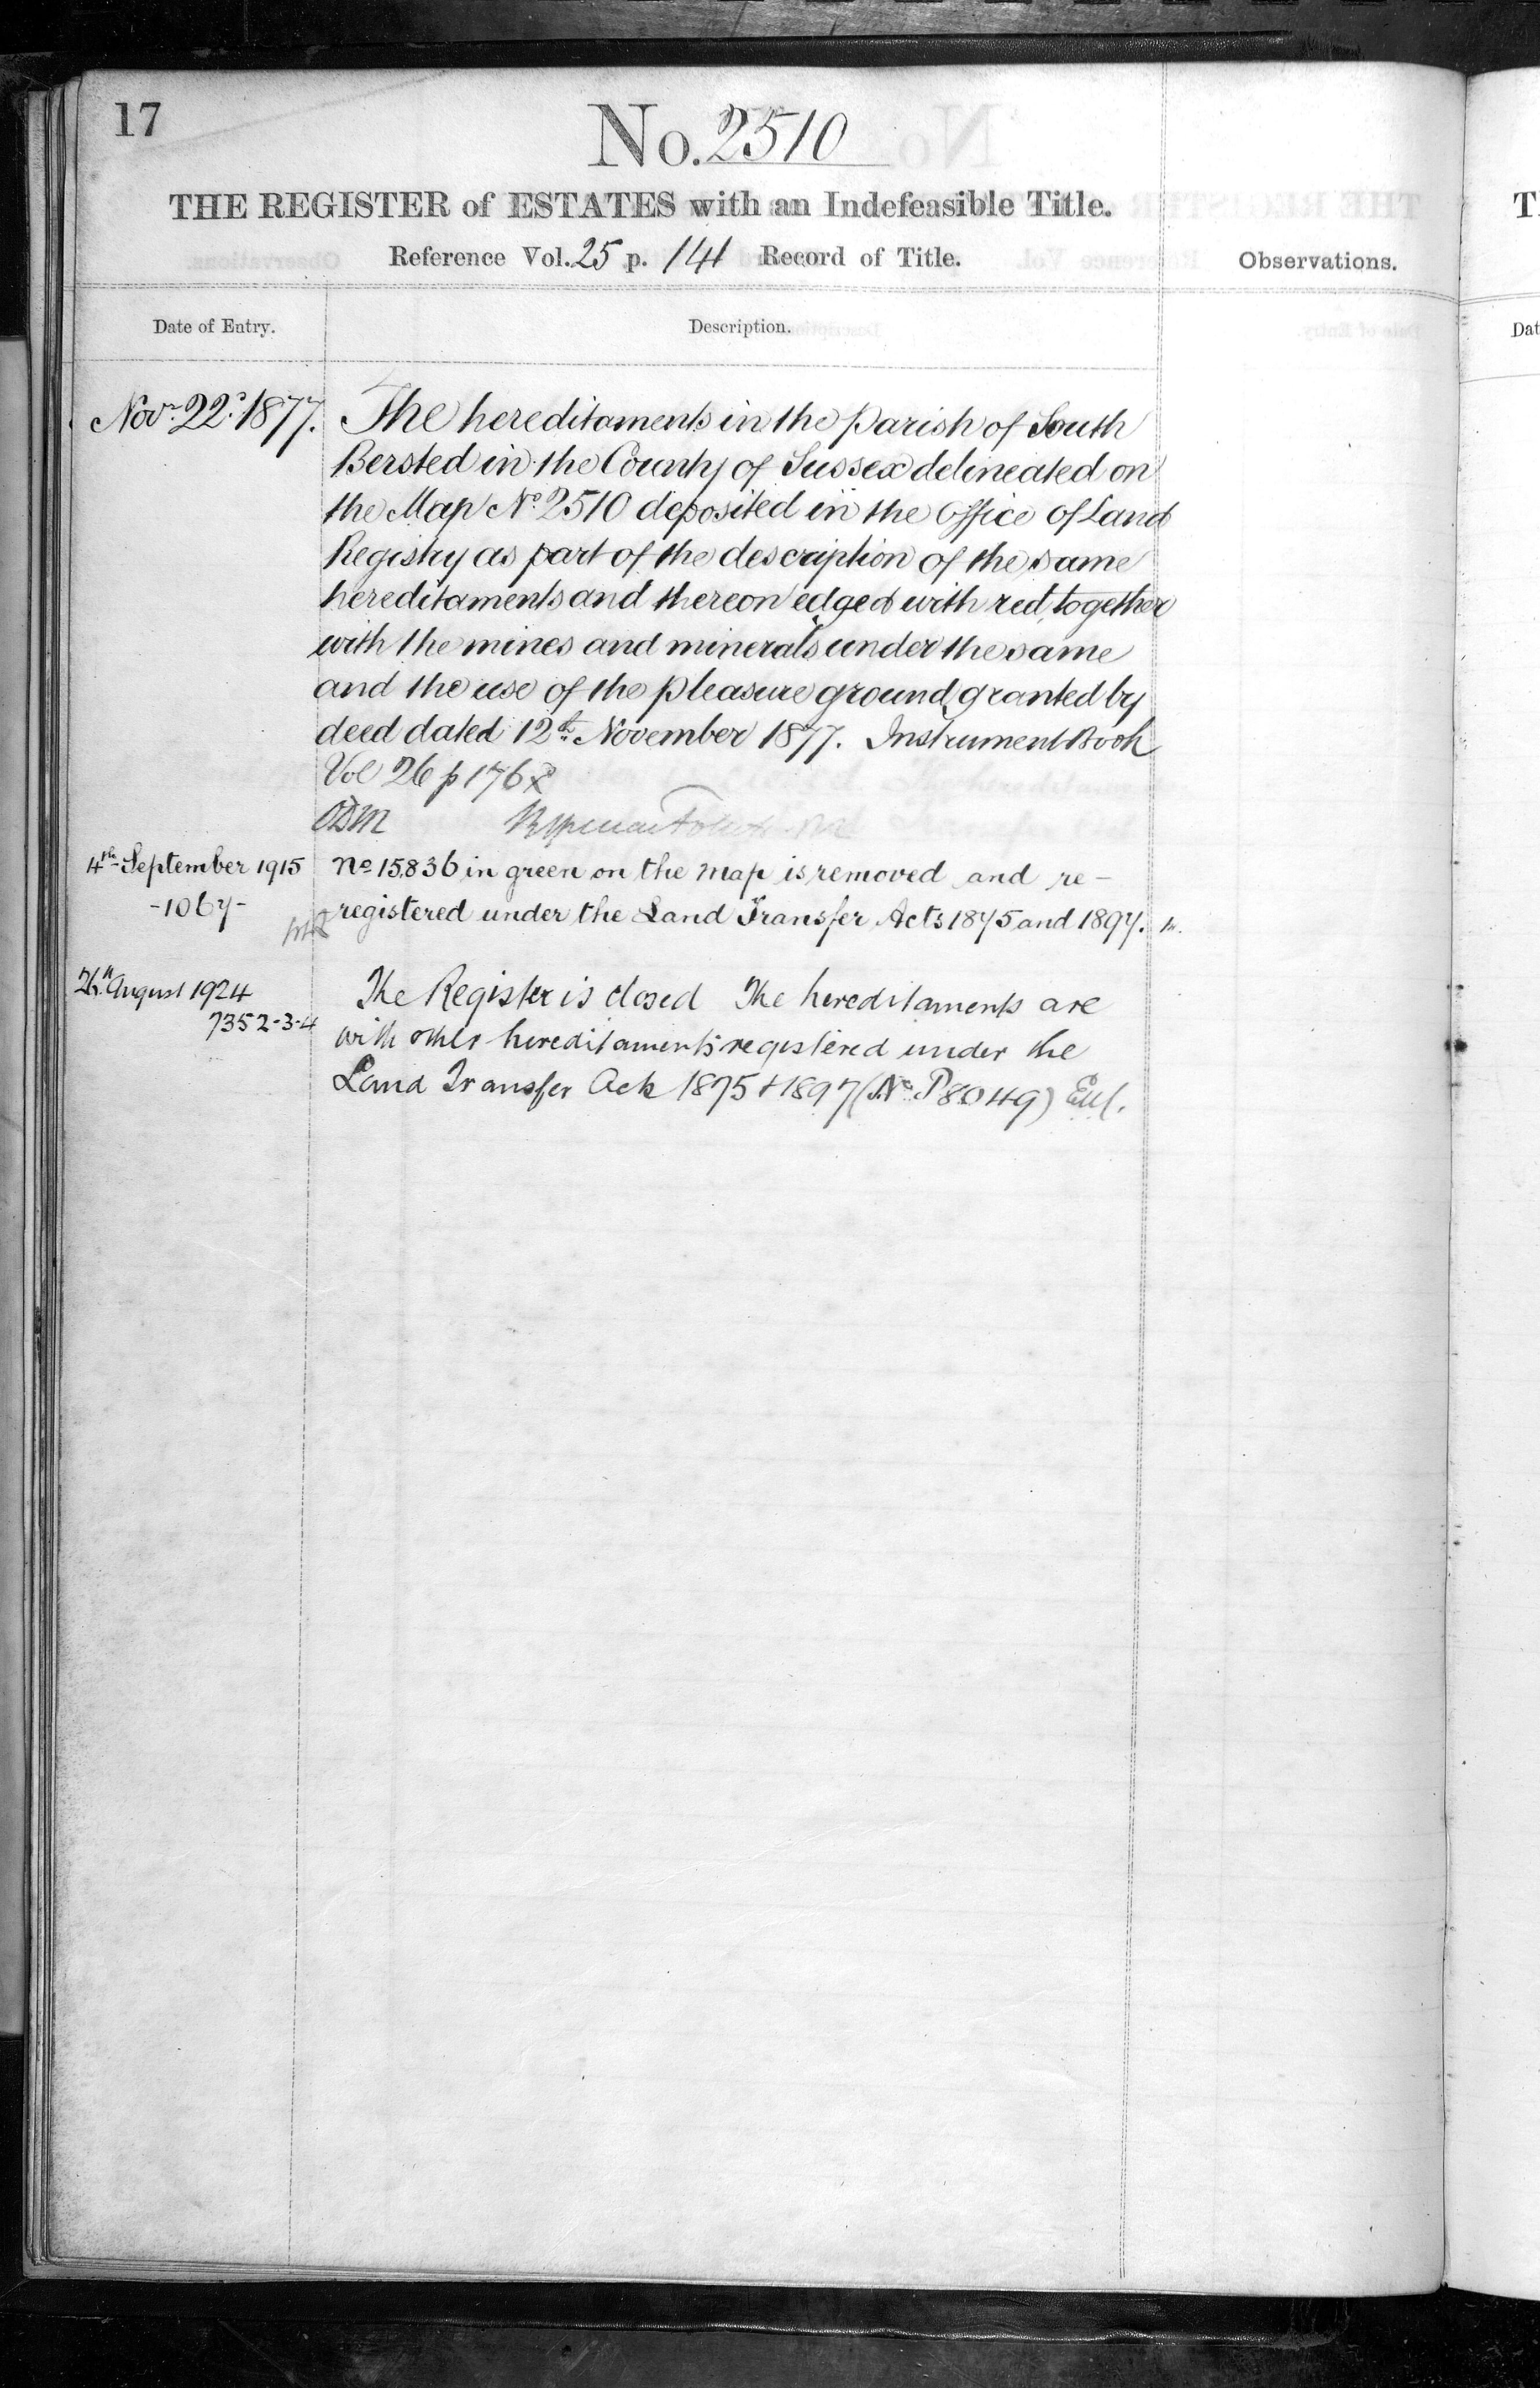 17
No. 2510
THE REGISTER of ESTATES with an Indefeasible Title.
Reference Vol. 25 p. 141 Record of Title.
Observations.
Date of Entry.
Description.
Novr. 22d. 1877.
The hereditaments in the parish of South
Bersted in the County of Sussex delineated on
the Map No. 2510 deposited in the Office of Land
Registry as part of the description of the same
hereditaments and thereon edged with red, together
with the mines and minerals under the same
and the use of the pleasure ground granted by
deed dated 12th. November 1877. Instrument Book
Vol 26 p 176
4th September 1915
-1067-
No 15,836 in green on the map is removed and re-
registered under the Land Transfer Acts 1875 and 1897.
26th August 1924
7352-3-4
The Register is closed The hereditaments are
with other hereditaments registered under the
Land Transfer Acts 1875 & 1897 (No. P8049)
T
Dat